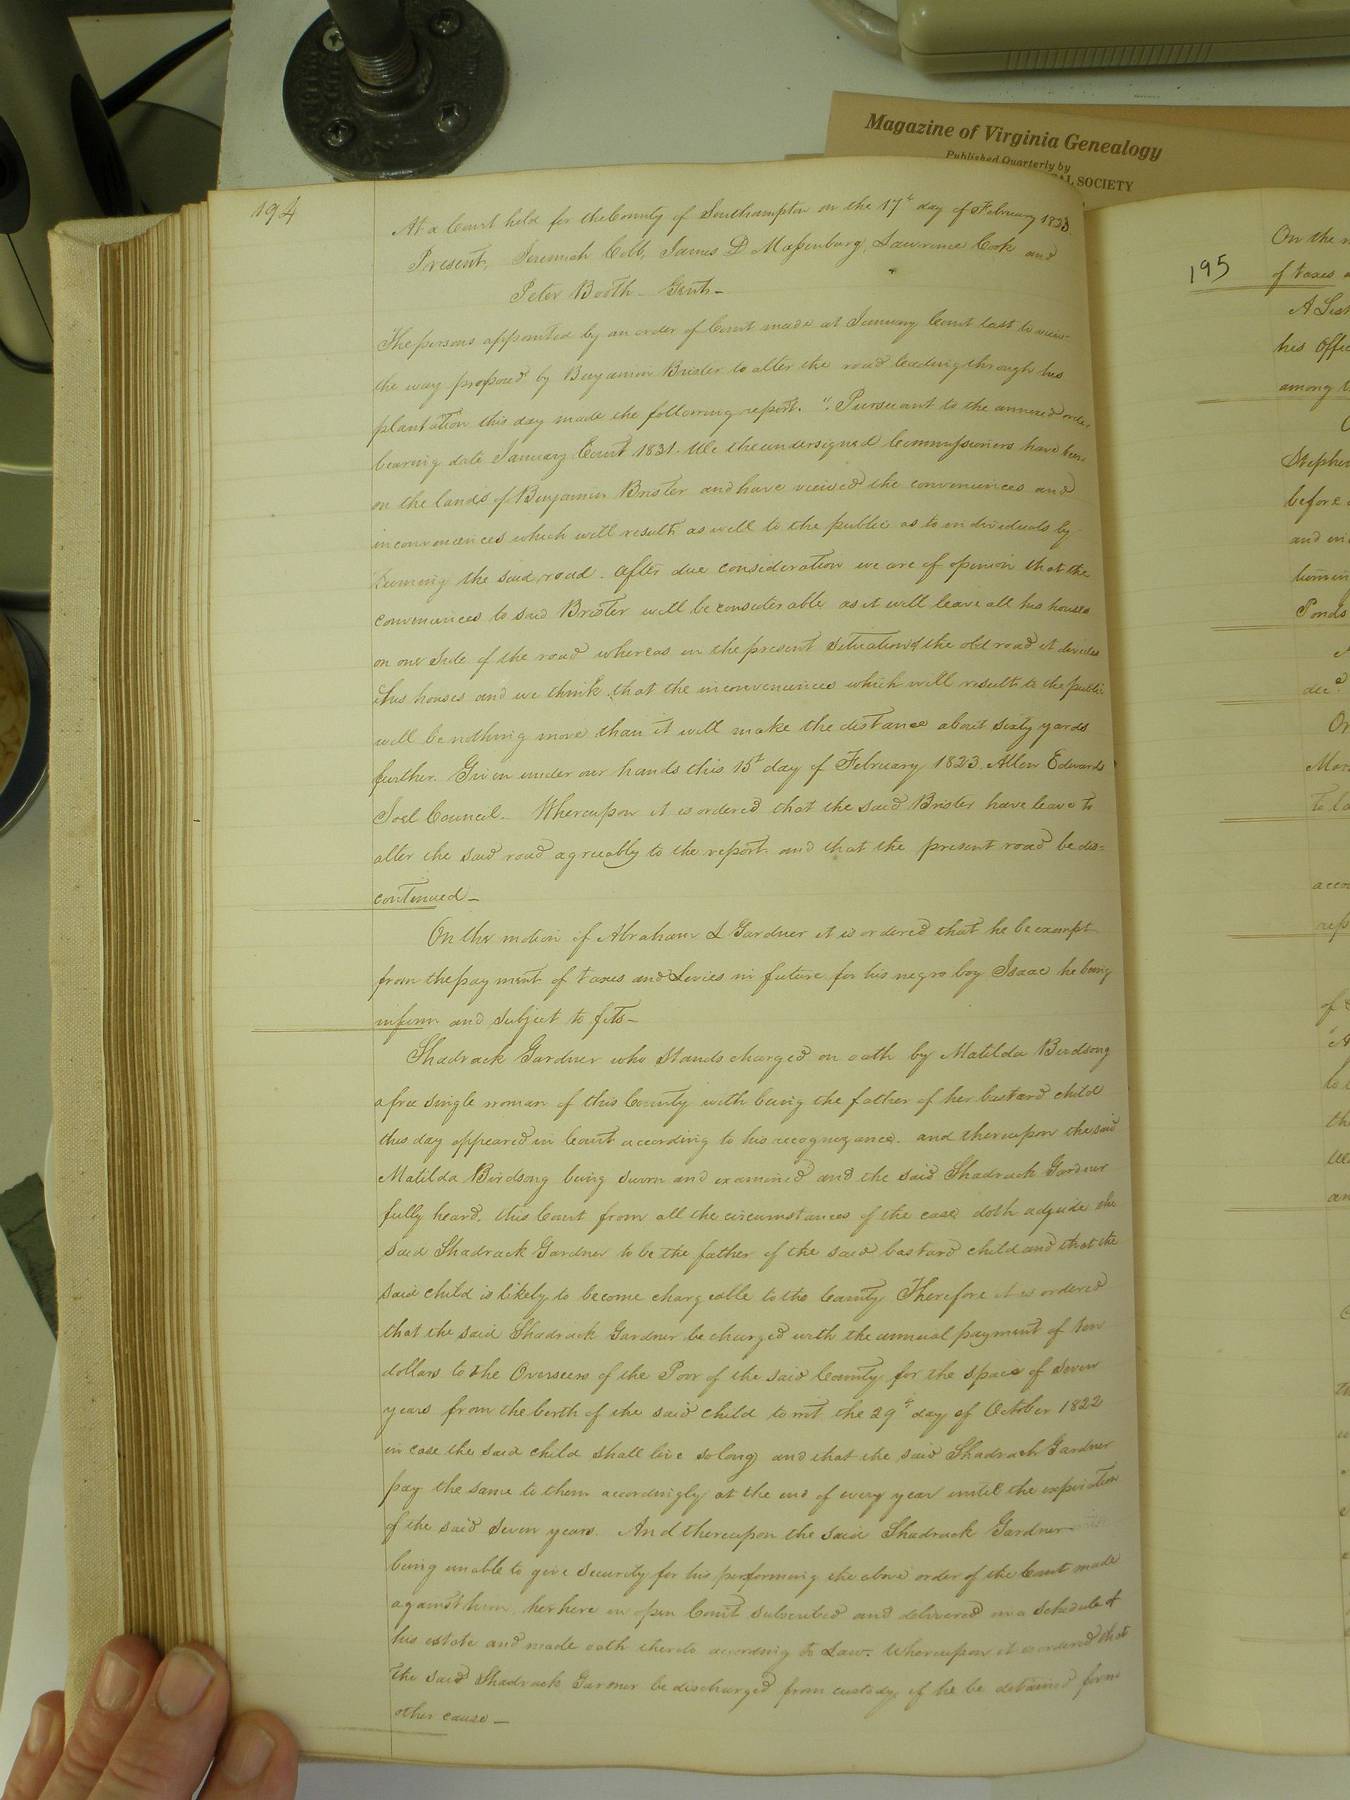 Magazine of Virginia Genealogy
Published Quarterly by
AL SOCIETY
194
At a Court held for the County of Southampton on the 17th day of February 1823
Present, Jeremiah Cobb, James D Massenburg, Lawrence Cook and
Peter Booth Gents-
The persons appointed by an order of Court made at January Court last to view
the way proposed by Benjamin Brister to alter the road leading through his
plantation this day made the following report. "Pursuant to the annexed order
bearing date January Court 1831. We the undersigned Commissioners have been
on the lands of Benjamin Brister and have viewed the conveniences and
inconveniences which will result as well to the public as to individuals by
turning the said road. After due consideration we are of opinion that the
conveniences to said Brister will be considerable as it will leave all his houses
on one side of the road whereas in the present situation of the old road it divides
his houses and we think that the inconveniences which will result to the public
will be nothing more than it will make the distance about sixty yards
further. Given under our hands this 15t day of February 1823. Allen Edwards
Joel Council. Whereupon it is ordered that the said Brister have leave to
alter the said road agreeably to the report and that the present road be dis=
continued-
On the motion of Abraham L Gardner it is ordered that he be exempt
from the payment of taxes and Levies in future for his negro boy Isaac he being
infirm and subject to fits-
Shadrack Gardner who stands charged on oath by Matilda Birdsong
a free single woman of this County with being the father of her bastard child
this day appeared in Court according to his recognizance. and thereupon the said
Matilda Birdsong being sworn and examined and the said Shadrack Gardner
fully heard, this Court from all the circumstances of the case doth adjude the
said Shadrack Gardner to be the father of the said bastard child and that the
said child is likely to become chargeable to the County Therefore it is ordered
that the said Shadrack Gardner be charged with the annual payment of ten
dollars to the Overseers of the Poor of the said County for the space of seven
years from the birth of the said child to wit the 29th day of October 1822
in case the said child shall live so long and that the said Shadrack Gardner
pay the same to them accordingly at the end of every year until the expiration
of the said seven years. And thereupon the said Shadrack Gardner
being unable to give security for his performing the above order of the Court made
against him, he here in open Court subscribed and delivered in a schedule of
his estate and made oath thereto according to Law. Whereupon it is ordered that
the said Shadrack Gardner be discharged from custody if he be detained for no
other cause-
195
On the
of taxes
A List
his Offi
among
Stephen
before
and
Ponds
decd
On